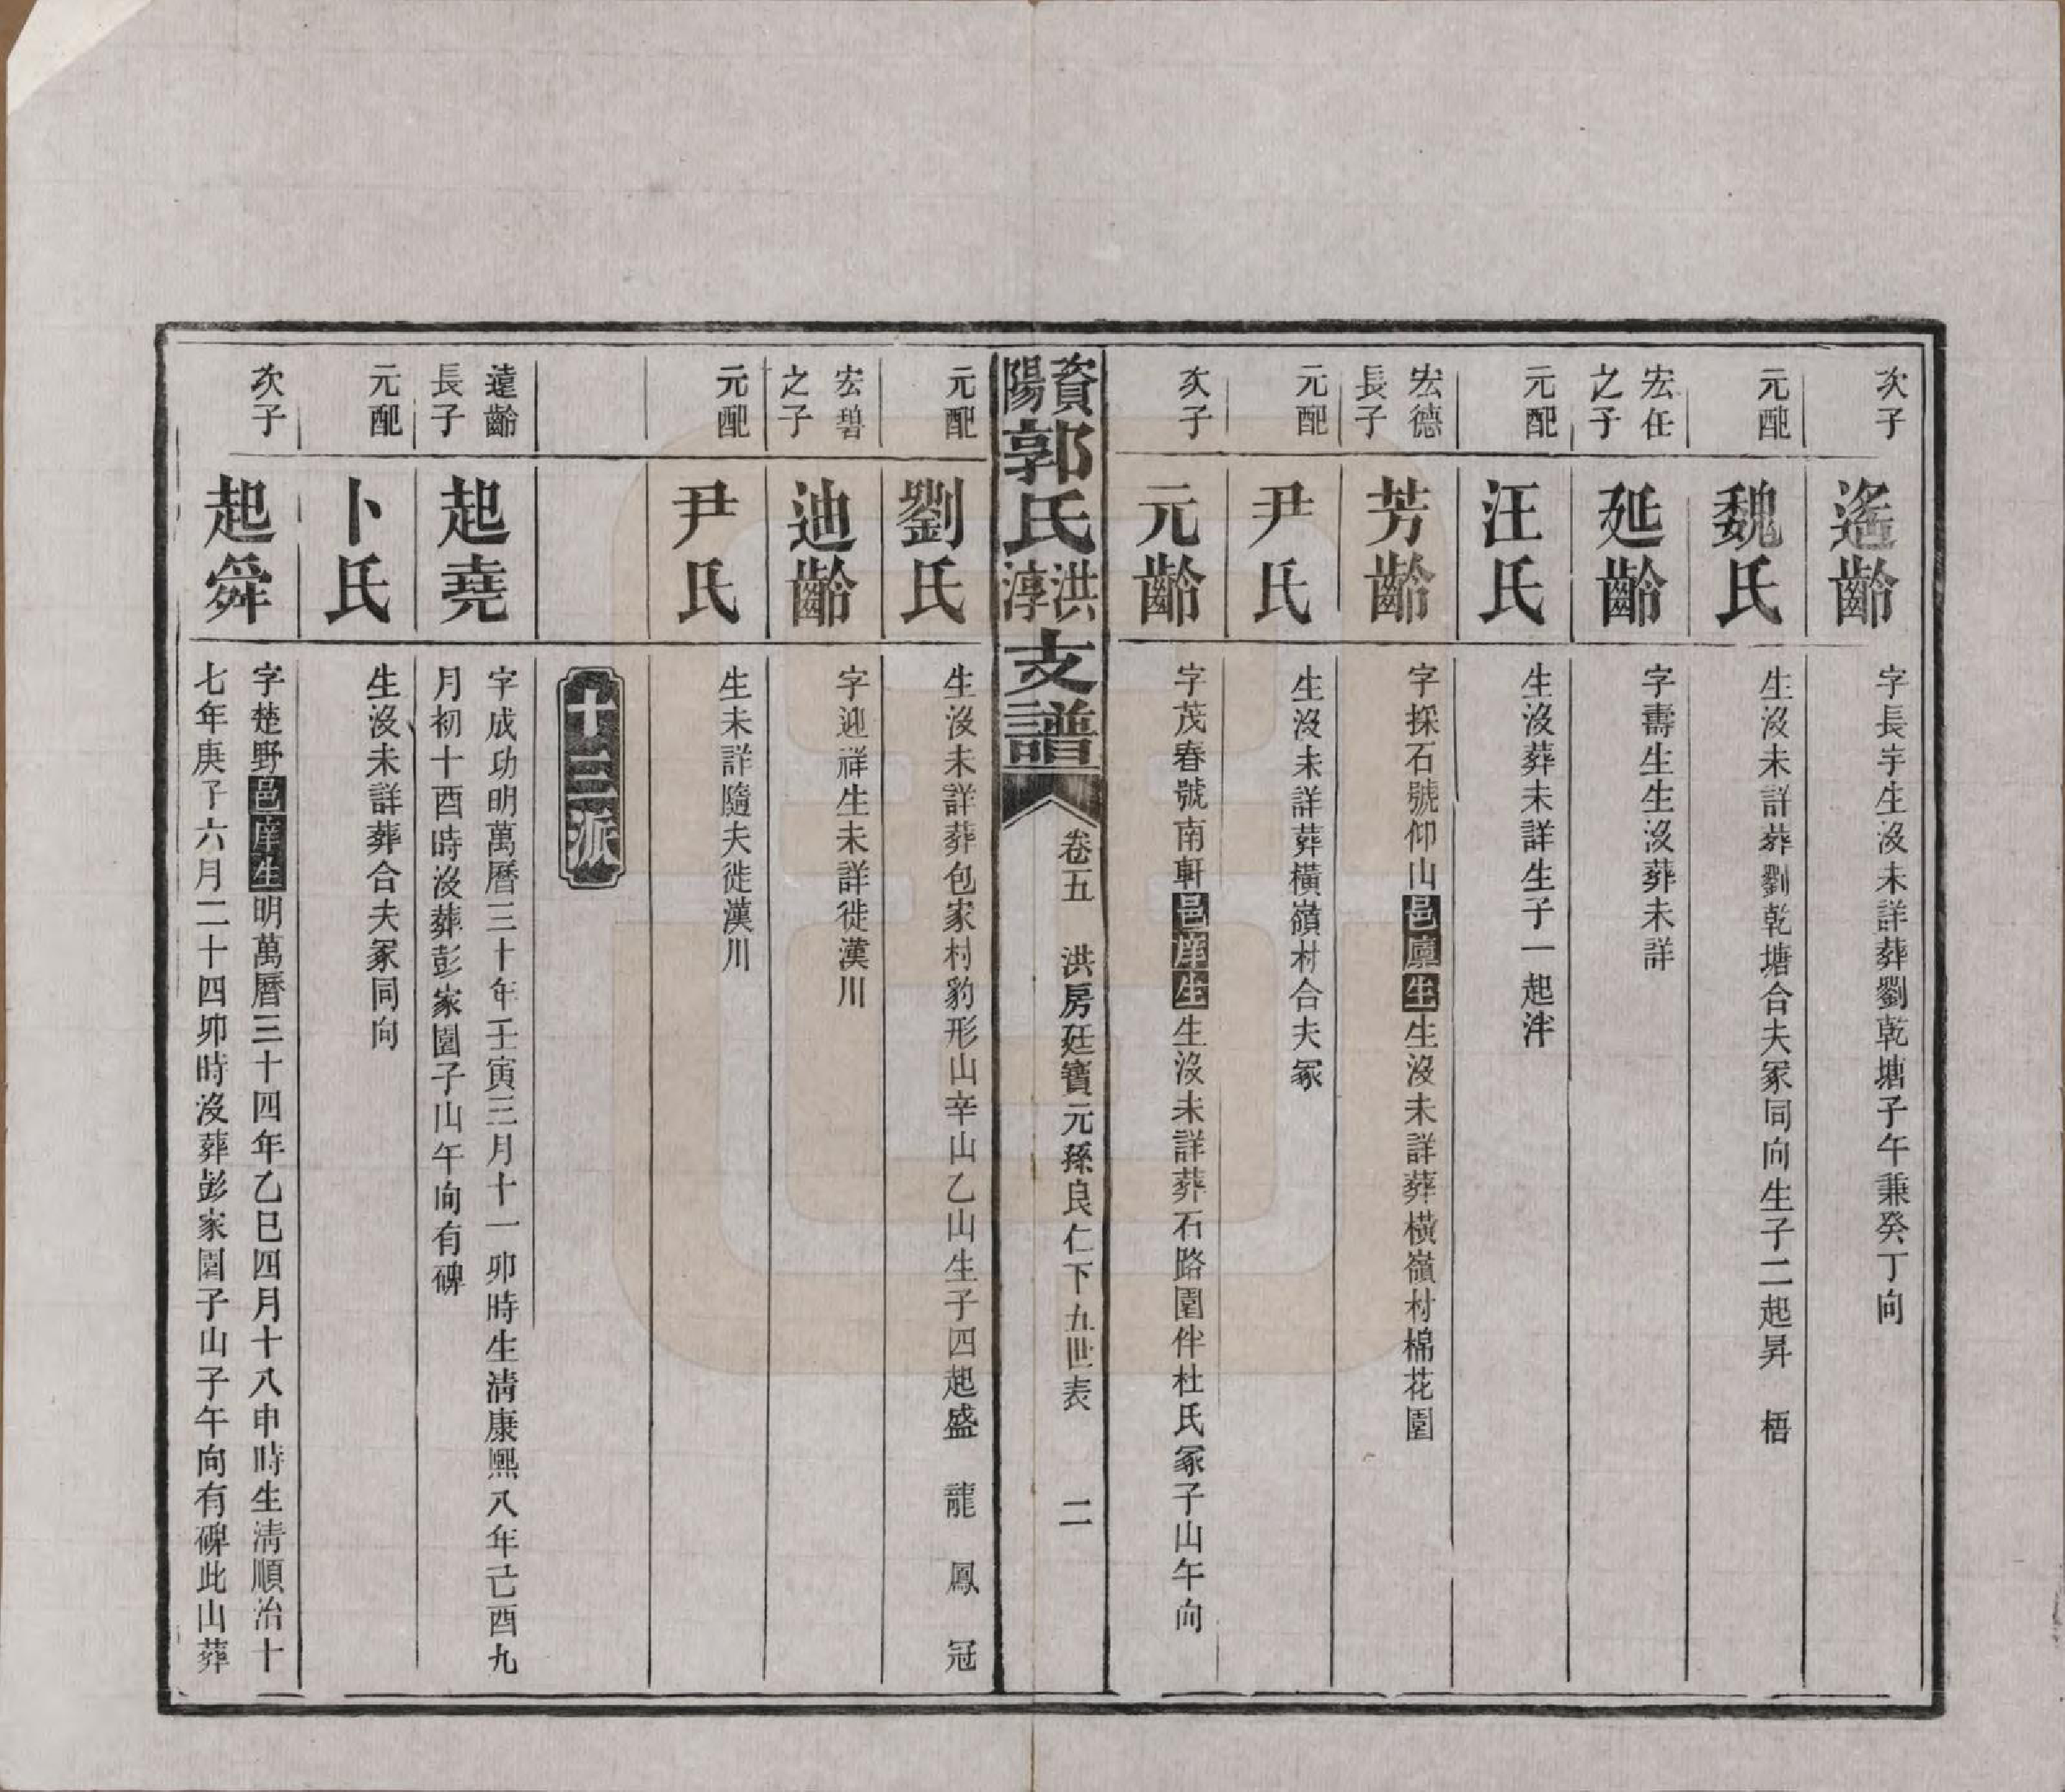 次子
遙齡
字長宇生沒未詳葬劉乾塘子午兼癸丁向
元配
魏氏
生沒未詳葬劉乾塘合夫冢同向生子二起昇　梧
宏任
之子
延齡
字壽生生沒葬未詳
元配
汪氏
生沒葬未詳生子一起泮
宏德
長子
芳齡
字採石號仰山邑廩生生沒未詳葬橫嶺村棉花園
元配
尹氏
生沒未詳葬橫嶺村合夫冢
次子
元齡
字茂春號南軒邑庠生生沒未詳葬石路園伴杜氏冢子山午向
資陽郭氏洪淳支譜
卷五　洪房廷寶元孫良仁下五世表　二
元配
劉氏
生沒未詳葬包家村豹形山辛山乙山生子四起盛　龍　鳳　冠
宏碧
之子
迪齡
字迎祥生未詳徙漢川
元配
尹氏
生未詳隨夫徙漢川
十三派
遠齡
長子
起堯
字成功明萬曆三十年壬寅三月十一卯時生清康熙八年己酉九
月初十酉時沒葬彭家園子山午向有碑
元配
卜氏
生沒未詳葬合夫冢同向
次子
起舜
字楚野邑庠生明萬曆三十四年乙巳四月十八申時生清順治十
七年庚子六月二十四卯時沒葬彭家園子山子午向有碑此山葬